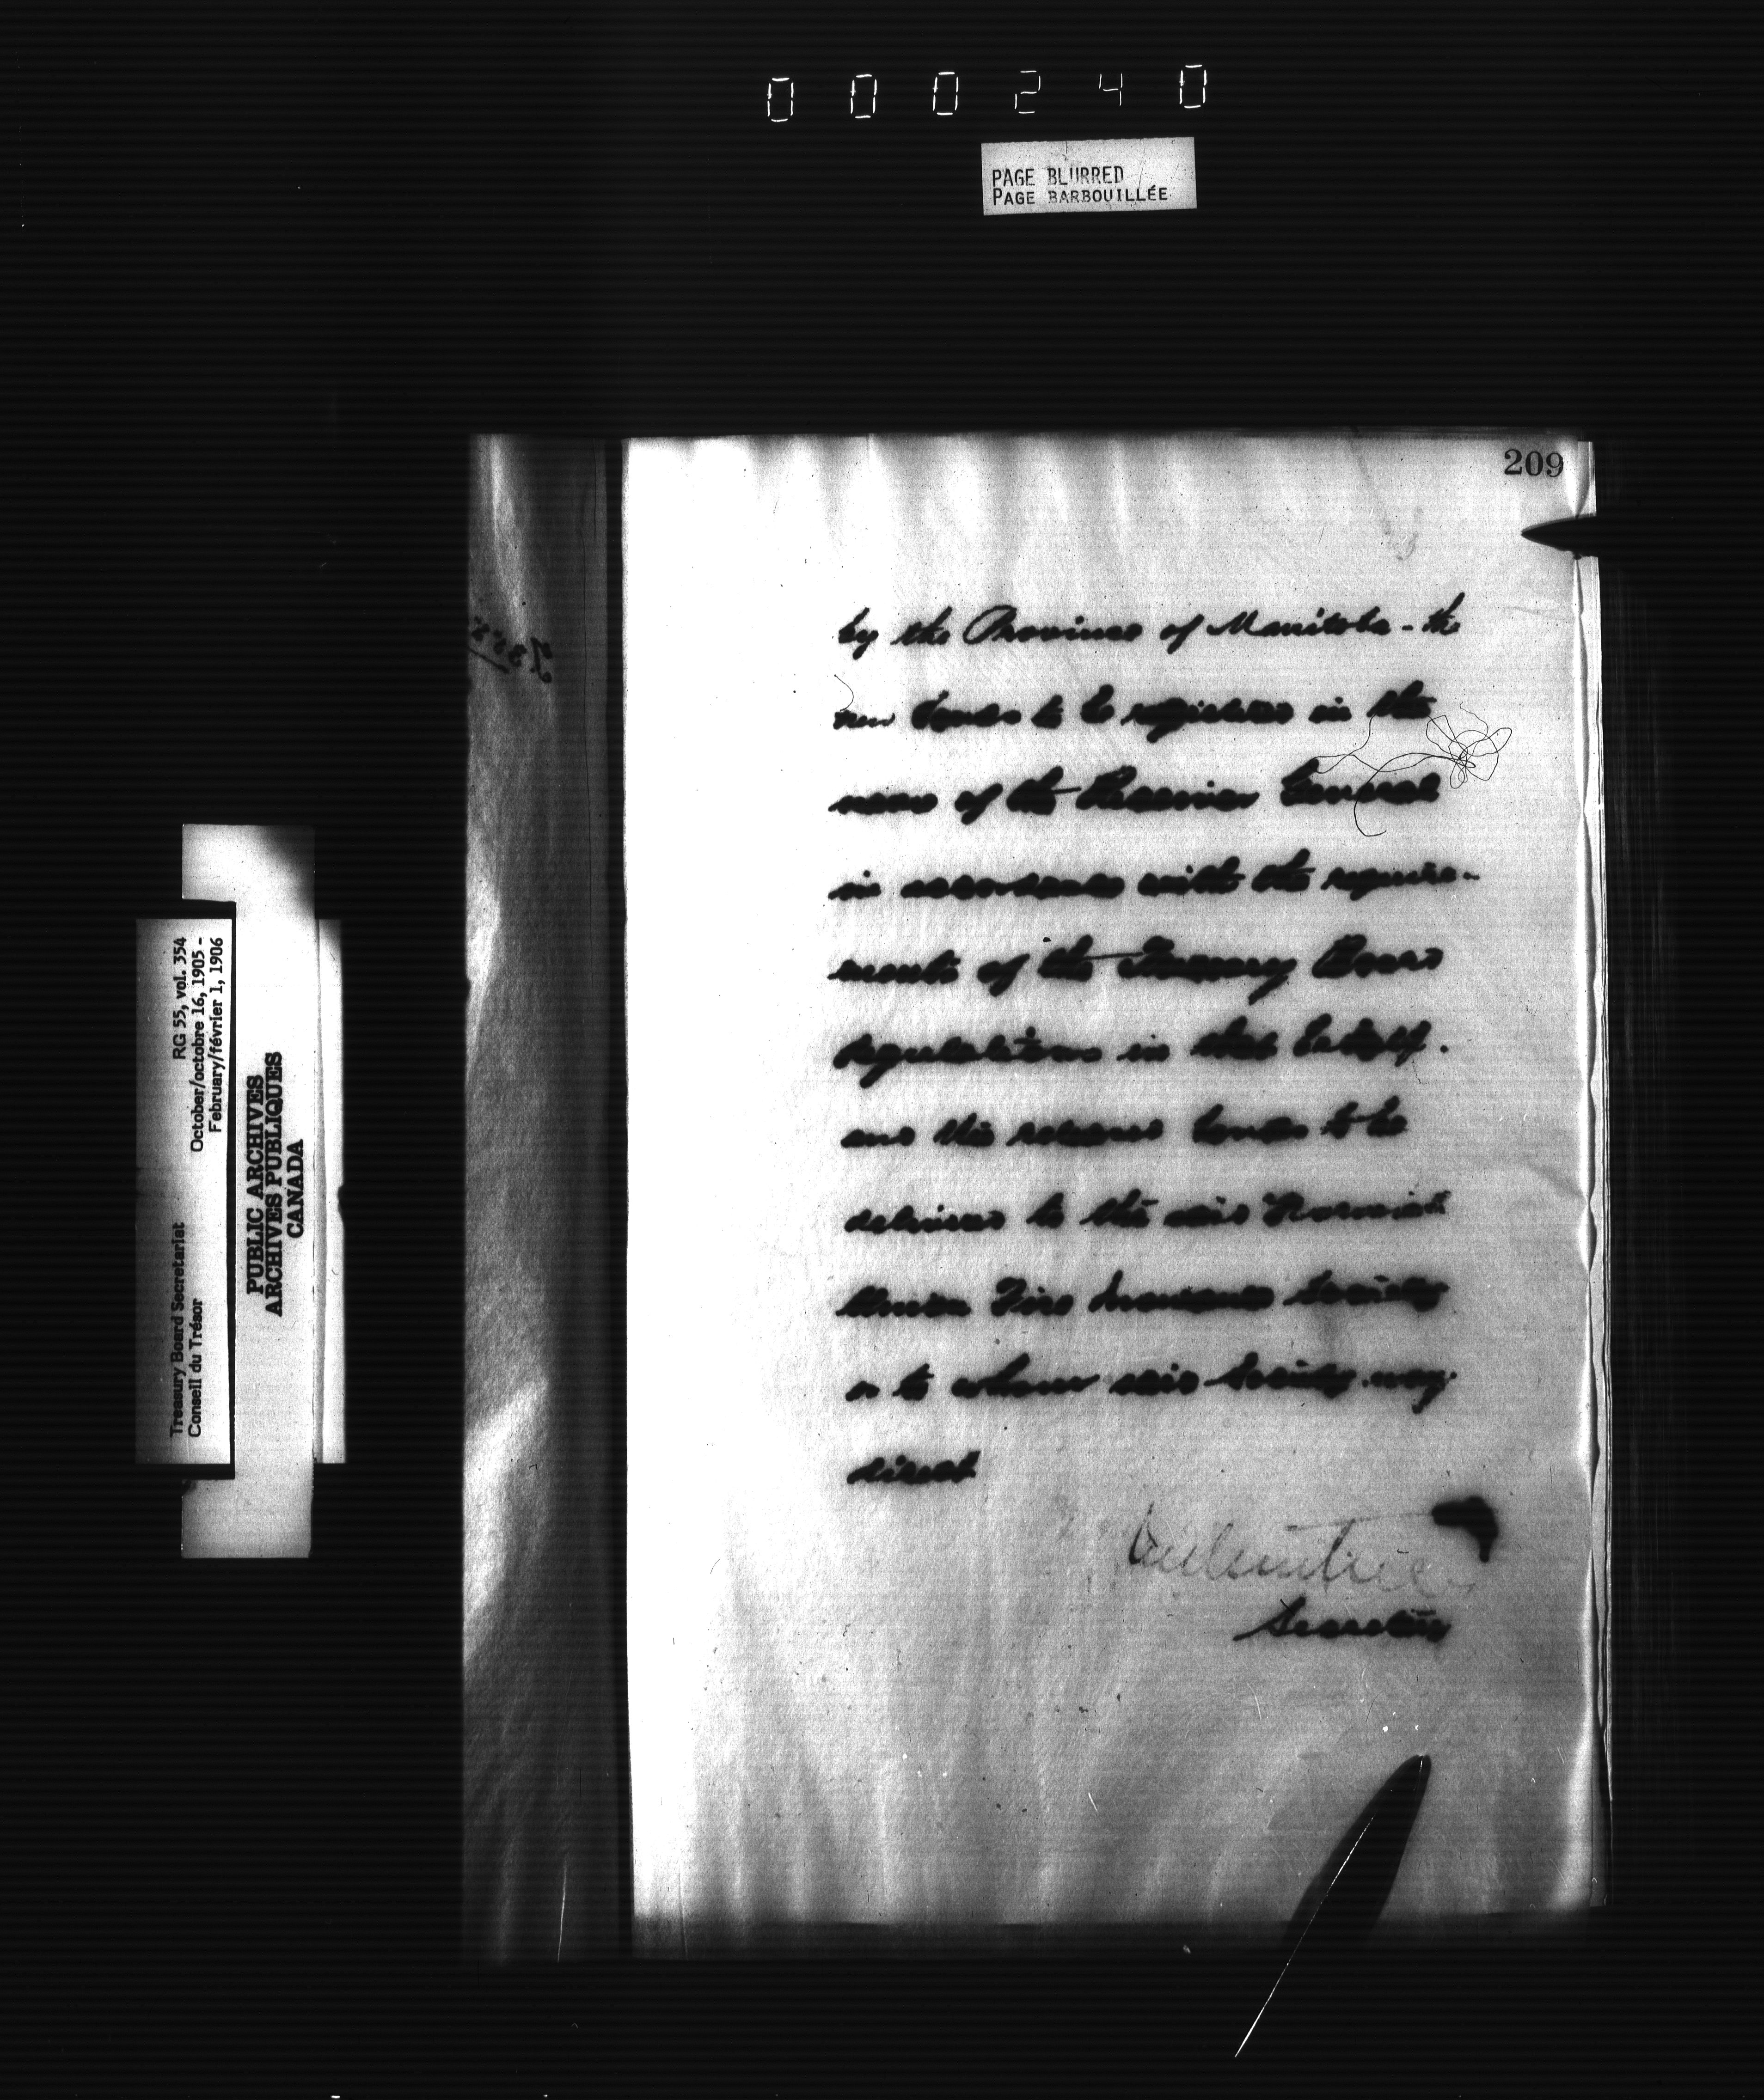 000240
PAGE BLURRED
PAGE BARBOUILLÉE
209
by the Province of Manitoba - the
new bonds to be registered in the
name of the Receiver General
in accordance with the require-
ments of the Treasury Board
regulations in that behalf.
and the released bonds to be
delivered to the said Norwich
Union Fire Insurance Society
or to whom said Society may
direct
Secretary
Treasury Board Secretariat
Conseil du Trésor
RG 55, vol. 354
October/octobre 16, 1905 -
February/février 1, 1906
PUBLIC ARCHIVES
ARCHIVES PUBLIQUES
CANADA